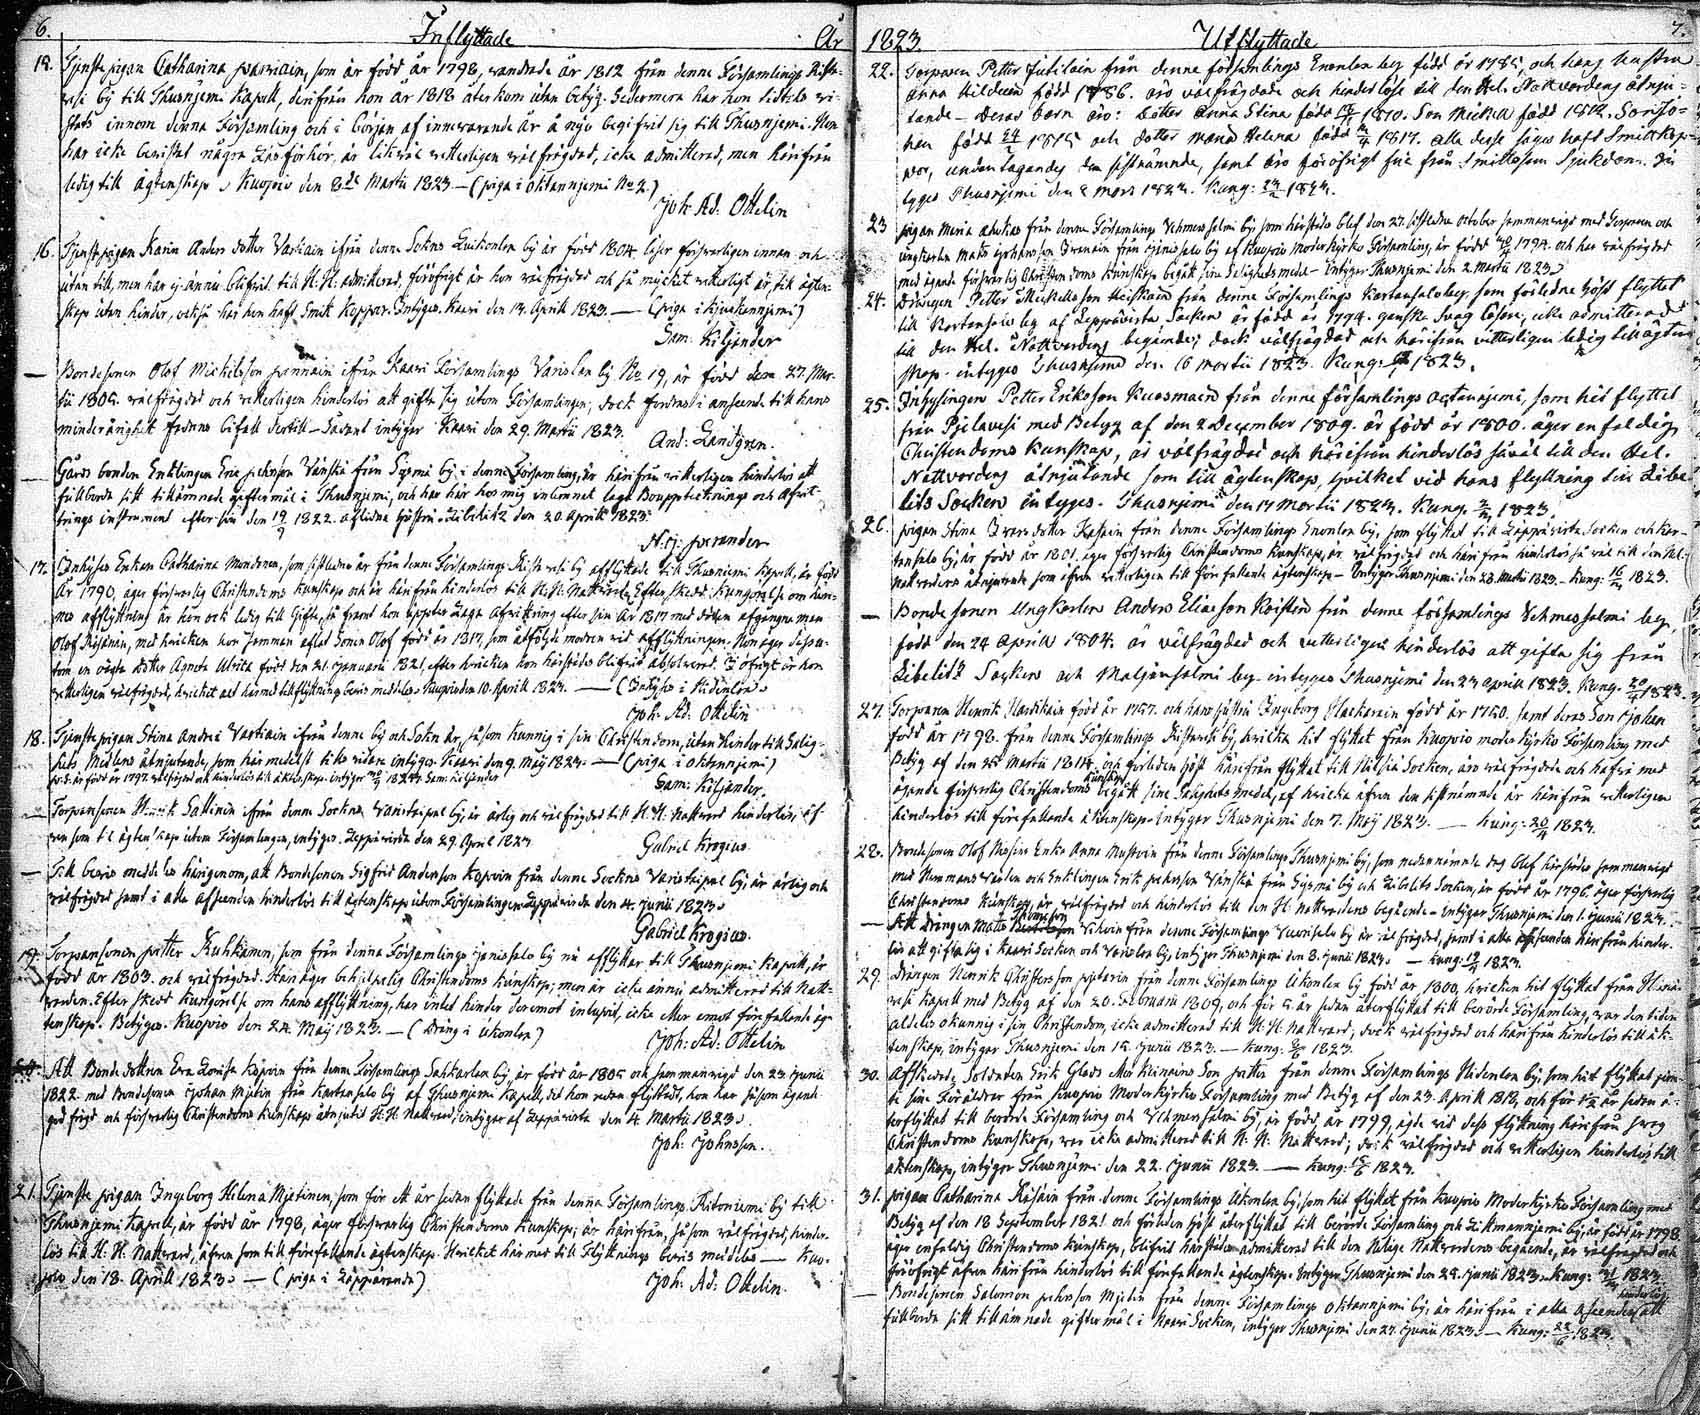 6. Inflyttade År
15. Tjenste pigan Catharina, som är född år 1798, vandrade år 1812 från denne Församlings Riste-
vesi by till Thusnjemi Kapell, derifrån hon år 1818 återkom utan betyg. Sedermera har hon
stads innom denna Församling och i början af innevarande år å nyo begifvit sig till Thusnjemi. Hon
har icke bevistat några Läsförhör, är likväl vetterligen välfrägdad, icke admitterad, men härifrån
ledig till ägtenskap. Kuopio den 8de Martii 1823 — (piga i Oktannjemi No 2.)
Joh. Ad. Ottelin
16. Tjenstepigan Karin Anders dotter Vartiain ifrån denne Sokns by är född 1804. läser försvarligen innan och
utan till, men har ej ännu blifvit till H. H. admitterad, föröfrigt är hon välfrägdad och så mycket vetterligt är, till ägten-
skap utan hinder, också har hon haft Smitt koppor. Intygas. Kaavi den 14. Aprill 1823. — (piga i)
Sam: Kiljander
— Bondesonen Olof Michilsson ifrån Kaavi Församlings Varislax by No 19, är född den 27. Mar-
tii 1805. välfrägdad och vetterligen hinderlös att gifta sig utom Församlingen; dock fordras i anseende till hans
minderårighet Fadrens bifall dertill — Sådant intygar Kaavi den 29. Martii 1823.
And: Landgren.
— Gårds bonden Enklingen Eric Pehrsson Vänskä från Sysmä by i denne Församling, är härifrån vetterligen hinderlös att
fullborda sitt tillämnade giftermål i Thusnjemi, och har här hos mig inlemnat laga Bouppteckning och Afvit-
trings instrument efter sin den 19/9 1822. aflidna hustru. Libelitz den 20. Aprill 1823.
17. Inhyses Enkan Catharina, som från denne Församlings Ristevesi by afflyttade till Thusniemi Kapell, är född
år 1790, äger försvarlig Christendoms kunskap och är härifrån hinderlös till H. H. Nattvard. Efter skedd kungörelse om hen-
nes afflyttning är hon ock ledig till Gifte, så framt hon uppter Laga Afvittring efter sin År 1817 med döden afgångne man
Olof, med hvilken hon samman aflat Sonen Olof född år 1817, som åtföljde modren vid afflyttningen. Hon äger
en dotter Agneta Ulrica född den 21. Januarii 1821, efter hvilken hon härstädes blifvit absolverad. I öfrigt är hon
vetterligen välfrägdad, hvilket allt härmed till flyttnings bevis meddelas. Kuopio den 10. Aprill 1823. — (Inhyses i Hidenlax.
Joh. Ad. Ottelin
18. Tjenste pigan Stina Andrea Vartiain ifrån denne by och Sokn är, såsom kunnig i sin Christendom, utan hinder till Salig-
hets Medlens åtnjutande, som härmedelst till vidare intygas. Kaavi den 9. Maj 1823. — (piga i Oktannjemi)
Sam: Kiljander.
— Torparesonen Sallinen ifrån denne Sockns Varistaipal by, är ärlig och välfrägdad till H. H. Nattvard hinderlös, äf-
ven som til ägtenskap utom Församlingen, intygas. Leppävirda den 29. April 1823
Gabriel Krogius.
— Till bevis meddelas härigenom, att Bondesonen Sigfrid Andersson Koponin från denne Sockns Varistaipal by, är ärlig och
välfrägdad samt i alla afseenden hinderlös till ägtenskap utom Församlingen. Leppävirda den 4. Junii 1823.
Gabriel Krogius.
19. Torparesonen Petter Kuhkänen, som från denne Församlings by nu afflyttar till Thusnjemi Kapell, är
född år 1803. och välfrägdad. Han äger behjelpelig Christendoms kunskap; men är icke ännu admitterad till Natt-
varden. Efter skedd kungörelse om hans afflyttning, har intet hinder deremot inlupit, icke eller emot förefallande äg-
tenskap. Betygas. Kuopio den 24. Maj 1823. — (Dräng i Ukonlax)
Joh: Ad: Ottelin
20. Att Bonde dottren Eva Lovisa Koponin från denne Församlings Sahkarlax by, är född år 1805 och sammanvigd den 23. Junii
1822 med Bondesonen Johan Mjetin från Kartansalo by af Thusnjemi Kapell, dit hon redan flyttadt, hon har såsom ägande
god frägd och försvarlig Christendoms kunskap åtnjutit H. H. Nattvard, intygas af Leppävirta den 4. Martii 1823.
Joh: Johnsson.
21. Tjenste pigan Ingeborg Helena Mjetinen, som för ett år sedan flyttade från denna Församlings Ritoniemi by till
Thusnjemi Kapell, är född år 1798, äger försvarlig Christendoms kunskap; är härifrån, såsom välfrägdad, hinder-
lös till H. H. Nattvard, äfven som till förefallande ägtenskap. Hvilket härmed till Flyttnings bevis meddelas — Kuo-
pio den 18. Aprill 1823. — (piga i Leppäranda)
Joh: Ad. Ottelin.
1823. Utflyttade 7.
22. Torparen Petter Jutilain från denne församlings Enonlax by född år 1785, och hans hustru
Anna född 1786. äro välfrägdade och hinderlöse till den Hel. Nattvardens åtnju-
tande — Deras barn äro: dotter Anna Stina född 1810. Son Mickel född 1812. Son Jo-
han född 24/ 1815 och dotter Maria Helena född 1817. alla desse säges haft Smittkop-
por, undantagandes den sistnämnde, samt äro föröfrigt frie från Smittosam Sjukdom. In-
tyges Thusnjemi den 2 Mars 1823. Kung: 1823.
23 pigan Maria från denne Församlings Vehmersalmi by, som härstädes blef den 27. sistledne October sammanvigd med Torparen och
ungkarlen Mats Johansson från by af Kuopio Moderkyrko Församling, är född 1794. och har välfrägdad
med ägande försvarlig Christendoms kunskap begått sine Salighets medel — Intygar Thusnjemi den 2. Martii 1823.
24. Drängen Petter Mickelsson Heiskain från denne Församlings Kartansalo by, som förledne höst flyttat
till Kortesalo by af Leppävirta Socken är född år 1794. ganska svag läsare, icke admitterad
till den Hel. Nattvardens begående; dock välfrägdad och härifrån vetterligen ledig till ägten-
skap. intygas Thusnjemi den 16 Martii 1823. Kung: 1823.
25. Inhysingen Petter Eriksson Kuosmain från denne församlings Oktannjemi, som hit flyttat
från Pjelavesi med Betyg af den 2 December 1809. är född år 1800. äger enfaldig
Christendoms kunskap, är välfrägdad och härifrån hinderlös såväl till den Hel.
Nattvardens åtnjutande som till ägtenskap, hvilket vid hans flyttning till Libe-
lits Socken intygas. Thusnjemi den 14 Martii 1823. Kung. 1823.
26. pigan Stina Ivarsdotter från denne Församlings Enonlax by, som flyttat till Leppävirta Socken och Kor-
tesalo by, är född år 1801. äger försvarlig Christendoms kunskap, är välfrägdad och härifrån hinderlös så väl till den Hel.
Nattvardens åtnjutande som äfven vetterligen till förefallande ägtenskap — Intygar Thusnjemi den 23. Martii 1823. — Kung: 1823.
— Bonde sonen Ungkarlen Anders Eliasson Roisten från denne församlings Vehmersalmi by,
född den 24 Aprill 1804. är välfrägdad och vetterligen hinderlös att gifta sig från
Libelits Socken och Maljansalmi by. intygas Thusnjemi den 23 Aprill 1823. Kung. 20/4 1823.
27. Torparen Henrik född år 1757. och hans hustru Ingeborg född år 1750. samt deras Son Johan
född år 1798. från denne Församlings Ristevesi by, hvilka hit flyttat från Kuopio moder kyrko Församling med
Betyg af den 25 Martii 1814. och förliden höst härifrån flyttat till Nilsiä Socken, äro välfrägdade och hafva med
ägande försvarlig Christendoms kunskap begått sine Salighets medel, af hvilka äfven den sistnämnde är härifrån vetterligen
hinderlös till förefallande ägtenskap. Intygar Thusnjemi den 7. Maj 1823. — Kung: 20/4 1823.
28. Bondesonen Olof Enka Anna Mustoin från denne Församlings Thusnjemi by, som nedannämnde dag blef härstädes sammanvigd
med Hemmans Värden och Enklingen Erik Pehrsson Vänskä från Sysmä by och Libelits Socken, är född år 1796. äger försvarlig
Christendoms kunskap, är välfrägdad och hinderlös till den H. Nattvardens begående — intygar Thusnjemi den 1. Junii 1823.
— Att Drängen Matts Thomasson från denne Församlings Vuorisalo by är välfrägdad, samt i alla afseenden härifrån hinder-
lös att gifta sig i Kaavi Socken och Varislax by, intygar Thusnjemi den 8. Junii 1823. — Kung: 1823.
29. Drängen Henrik Christersson från denne Församlings Ukonlax by född år 1800, hvilken hit flyttat från
vesi Kapell med Betyg af den 20. Februarii 1809, och för 5 år sedan återflyttat till berörde Församling, var den tiden
aldeles okunnig i sin Christendom, icke admitterad till H. H. Nattvard; dock välfrägdad och härifrån hinderlös till äk-
tenskap, intygar Thusnjemi den 15. Junii 1823. — Kung: 1823.
30. Afskedade Soldaten Erik Glads Son Petter från denne Församlings Hidenlax by, som hit flyttat jem-
te sine Föräldrar från Kuopio Moderkyrko Församling med Betyg af den 23. Aprill 1818, och för 1½ år sedan å-
terflyttat till berörde Församling och Vehmersalmi by, är född, år 1799, ägde vid dess flyttning härifrån svag
Christendoms kunskap, var icke admitterad till H. H. Nattvard; dock välfrägdad och vetterligen hinderlös till
äktenskap, intygar Thusnjemi den 22. Junii 1823. — Kung: 1823.
31. pigan Catharina Räsäin från denne Församlings Ukonlax by, som hit flyttat från Kuopio Moderkyrko Församling med
Betyg af den 18 September 1821 och förliden höst återflyttat till berörde Församling och by, är född år 1798
äger enfaldig Christendoms kunskap, blifvit härstädes admitterad till den Helige Nattvardens begående, är välfrägdad och
föröfrigt äfven härifrån hinderlös till förefallande ägtenskap. Intygar Thusnjemi den 29. Junii 1823. Kung: 1823.
— Bondesonen Salomon Pehrsson Mjetin från denne Församlings Oktannjemi by, är härifrån i alla afseenden hinderlös att
fullborda sitt tillämnade giftermål i Kaavi Socken, intygar Thusnjemi den 27. Junii 1823. — Kung: 22/6 1823.